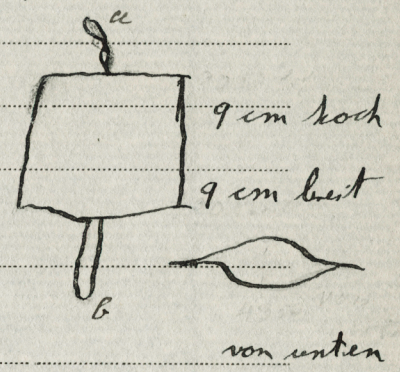 a
9 cm hoch
9 cm breit
b
von unten